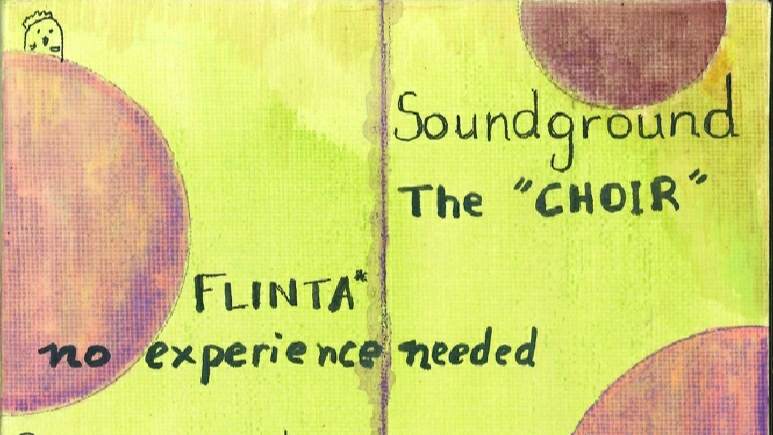 Soundground
The "CHOIR"
FLINTA*
no experience needed